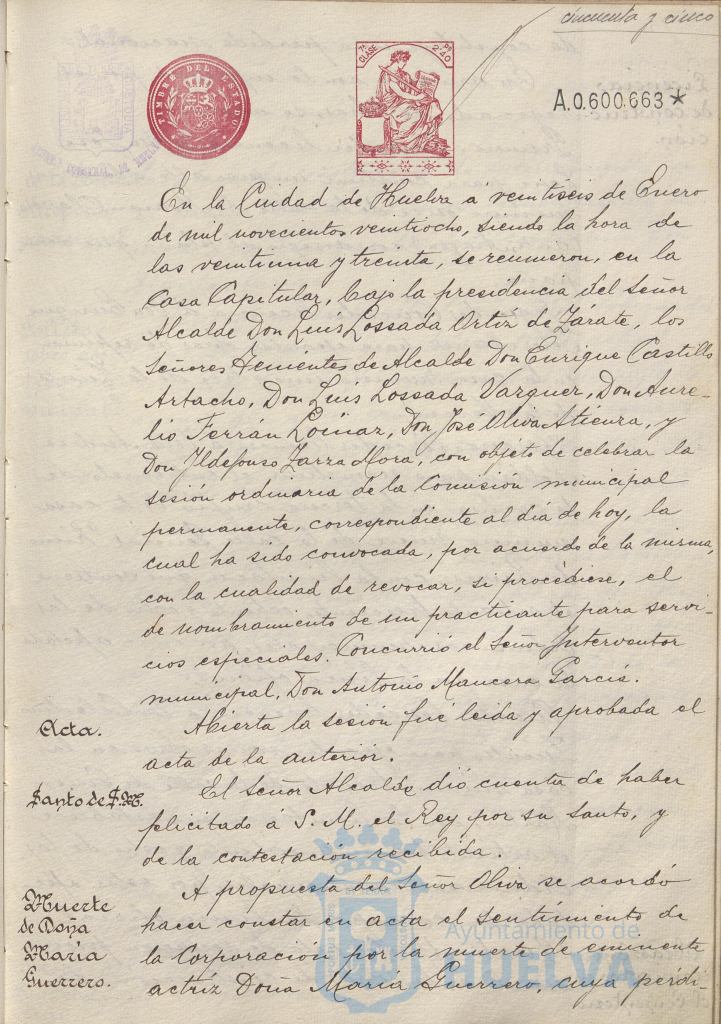 cincuenta y cinco
TIMBRE DEL ESTADO
7ª CLASE
Ps 2'40
A.0.600.663 *
En la Ciudad de Huelva á veintiseis de Enero
de mil novecientos veintiocho, siendo la hora de
las veintiuna y treinta, se reunieron, en la
Casa Capitular, bajo la presidencia del Señor
Alcalde Don Luis Lossada Ortiz de Zárate, los
Señores Tenientes de Alcalde Don Enrique Castillo
Artacho, Don Luis Lossada Vazquez, Don Aure-
lio Ferrán Loinaz, Don José Oliva Atienza, y
Don Ildefonso Zarza Mora, con objeto de celebrar la
sesión ordinaria de la Comisión municipal
permanente, correspondiente al día de hoy, la
cual ha sido convocada, por acuerdo de la misma,
con la cualidad de revocar, si procediese, el
de nombramiento de un practicante para servi-
cios especiales. Concurrió el Señor Interventor
municipal, Don Antonio Mancera García.
Acta.
Abierta la sesión fué leida y aprobada el
acta de la anterior.
Santo de S.M.
El Señor Alcalde dió cuenta de haber
felicitado á S. M. el Rey por su Santo, y
de la contestación recibida.
Muerte
de Doña
María
Guerrero.
A propuesta del Señor Oliva se acordó
hacer constar en acta el sentimiento de
la Corporación por la muerte de eminente
actriz Doña María Guerrero, cuya pérdi-
Ayuntamiento de
HUELVA